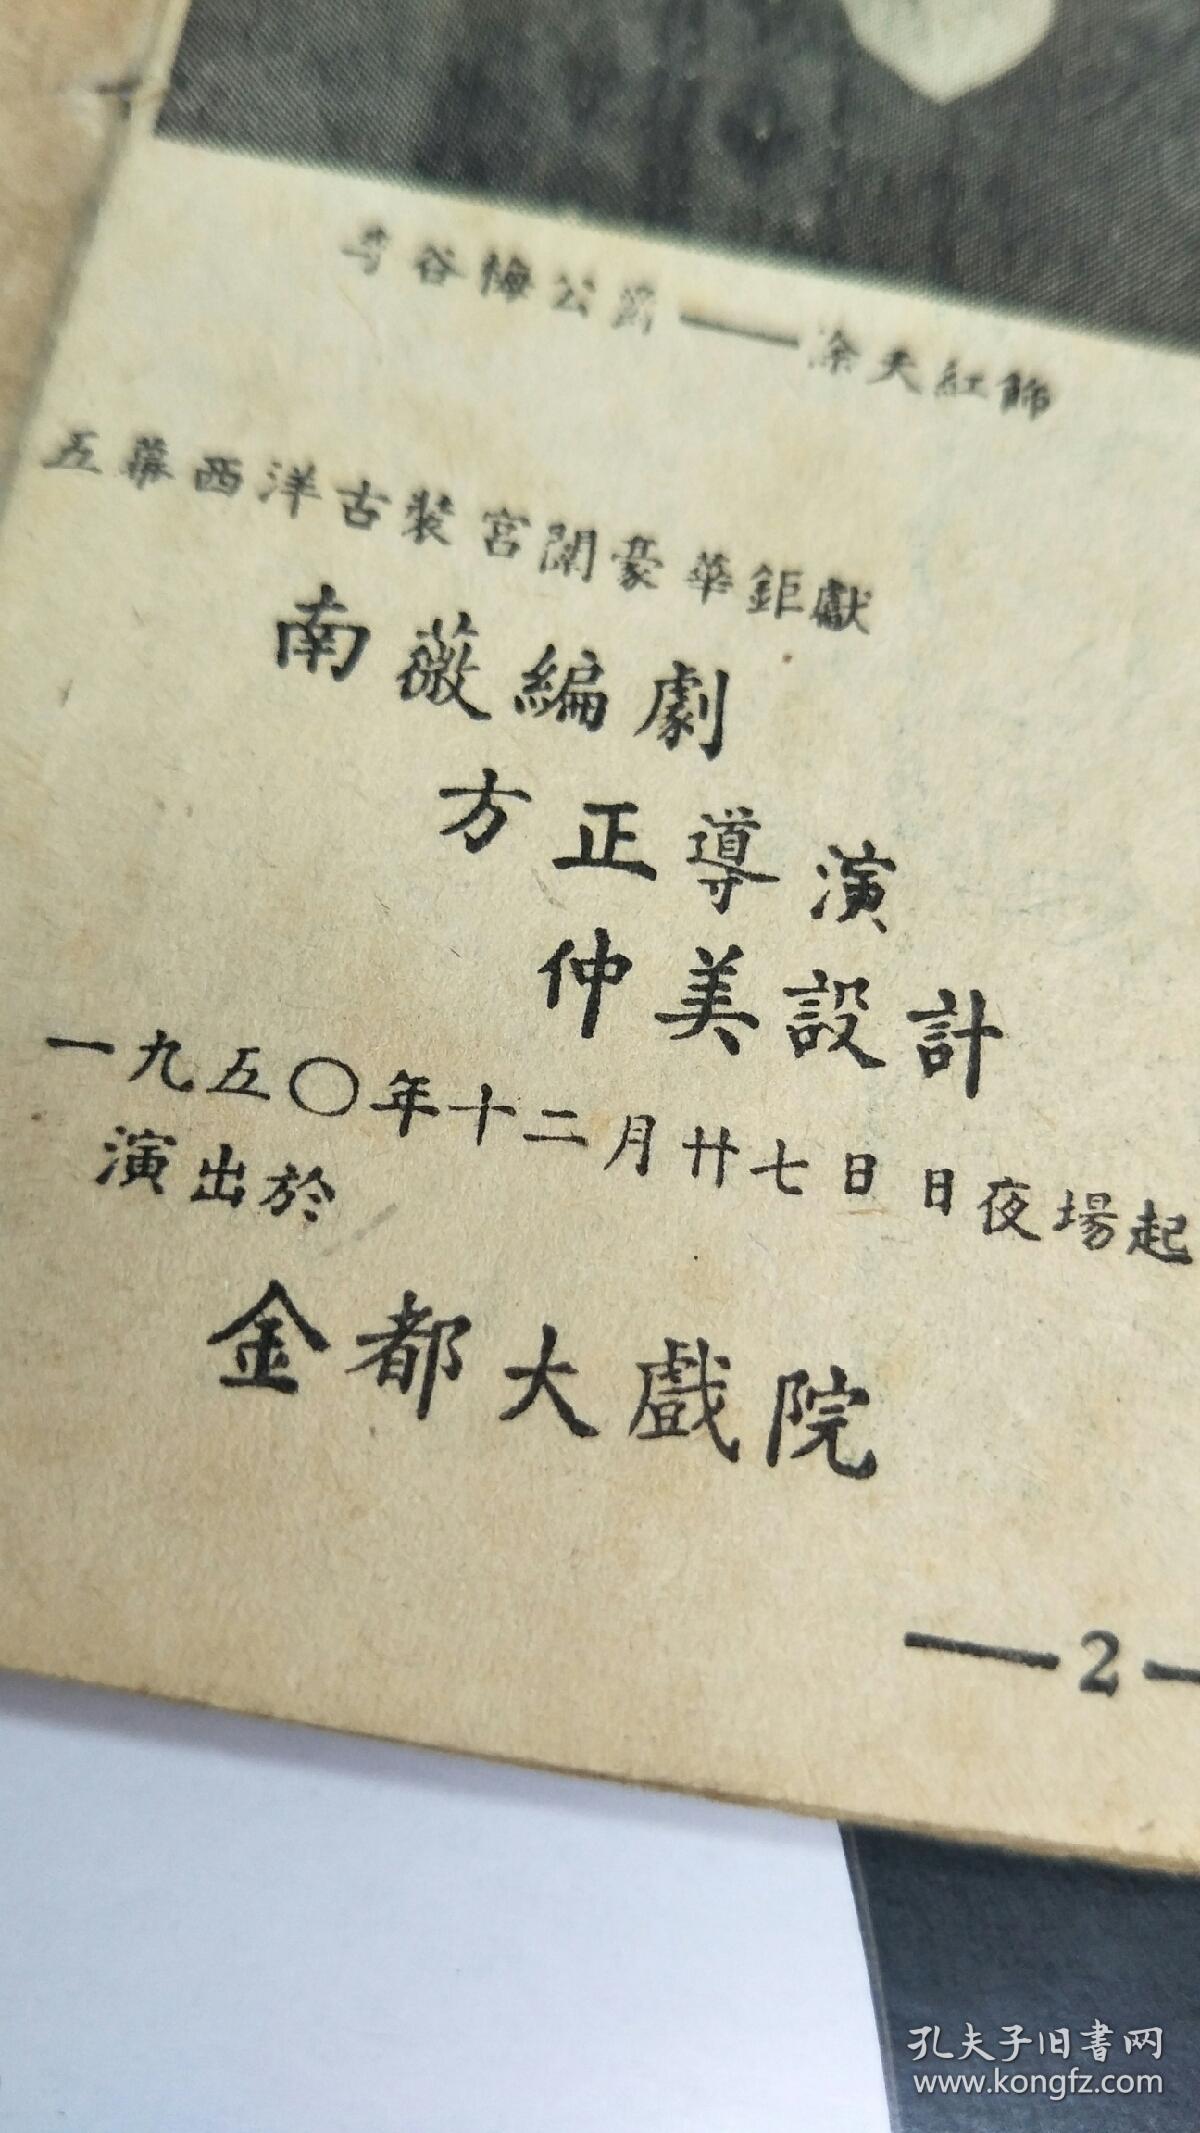 谷梅公爵——涂天紅飾
五幕西洋古裝宮闈豪華鉅獻
南薇編劇
方正導演
仲美設計
一九五〇年十二月廿七日日夜場起
演出於
金都大戲院
—2—
孔夫子旧书网
www.kongfz.com